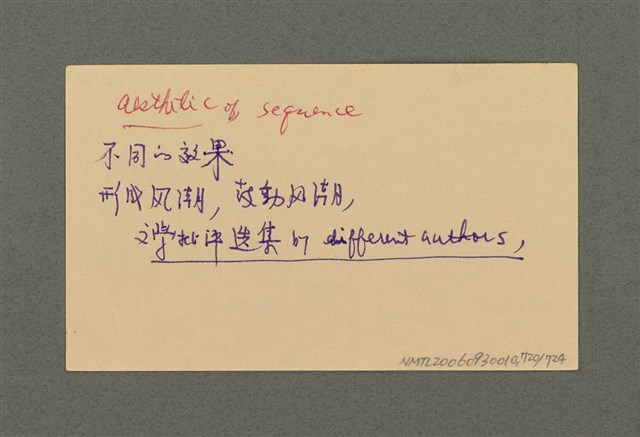 aesthetic of sequence
不同的效果
形成风潮，鼓動风潮，
文學批评选集 by different authors,
NMTL20060930010,720/724